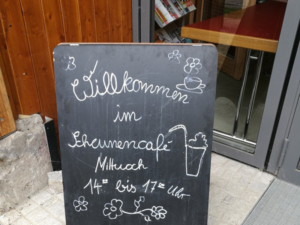 Willkommen
im
Scheunencafé
Mittwoch
14ºº bis 17ºº Uhr